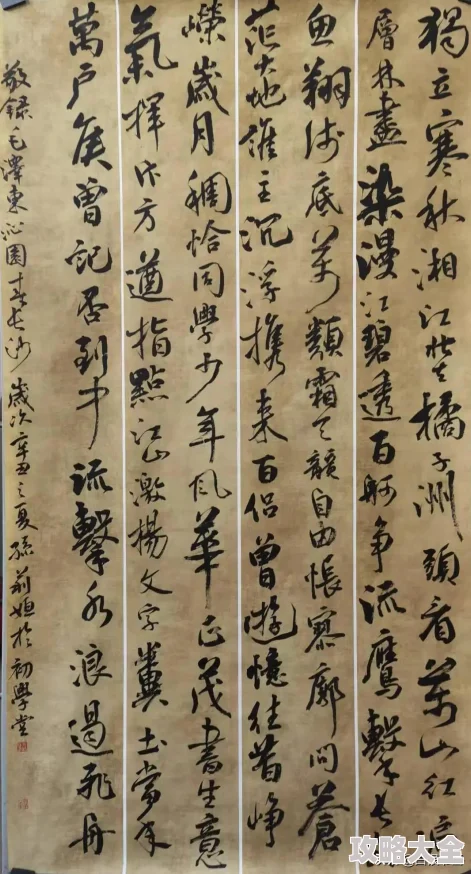 獨立寒秋湘江北去橘子洲頭看萬山紅遍
層林盡染漫江碧透百舸争流鷹擊長
魚翔淺底萬類霜天競自由悵寥廓問蒼
茫大地誰主沉浮携来百侣曾遊憶往昔崢
嶸歲月稠恰同學少年風華正茂書生意
氣揮斥方遒指點江山激揚文字糞土當年
萬户侯曾記否到中流擊水浪遏飛舟
敬録毛澤東沁園春長沙歲次辛丑之夏孫莉姮於初學堂
攻略大全